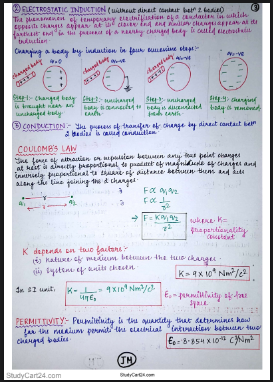 ② ELECTROSTATIC INDUCTION (without direct contact betⁿ 2 bodies)
The phenomenon of temporary electrification of a conductor in which
opposite charges appear at its closer end and similar charges appear at its
farthest end in the presence of a nearby charged body is called electrostatic
induction.
Charging a body by induction in four successive steps:-
charged body
charged body
charged body
Step-1:- charged body
is brought near an
uncharged body.
Step-2:- uncharged
body is connected to
earth
uncharged
body is disconnected
from earth.
charged
body is removed
③ CONDUCTION:- The process of transfer of charge by direct contact betⁿ
2 bodies is called conduction
COULOMB'S LAW
The force of attraction or repulsion between any two point charges
at rest is directly proportional to product of magnitude of charges and
inversely proportional to square of distance between them and acts
along the line joining the 2 charges.
q₁ r q₂
F ∝ q₁q₂
F ∝ 1/r²
→ F = K q₁q₂/r²
where K=
proportionality
constant
K depends on two factors:-
(i) nature of medium between the two charges
(ii) system of units chosen
K = 9×10⁹ Nm²/c²
In SI unit,
K = 1/4πε₀ = 9×10⁹ Nm²/c²
ε₀ = permittivity of free
space
PERMITTIVITY:- Permittivity is the quantity that determines how
far the medium permits the electrical interaction between two
charged bodies.
ε₀ = 8.854 × 10⁻¹² C²/Nm²
JM
StudyCart24.Com
StudyCart24.Com